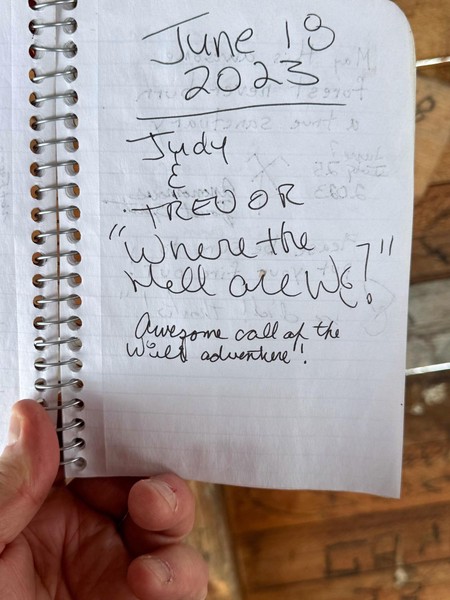 June 18
2023
Judy
&
TREVOR
"Where the
Hell are We?!"
Awesome call of the
Wild adventure!!